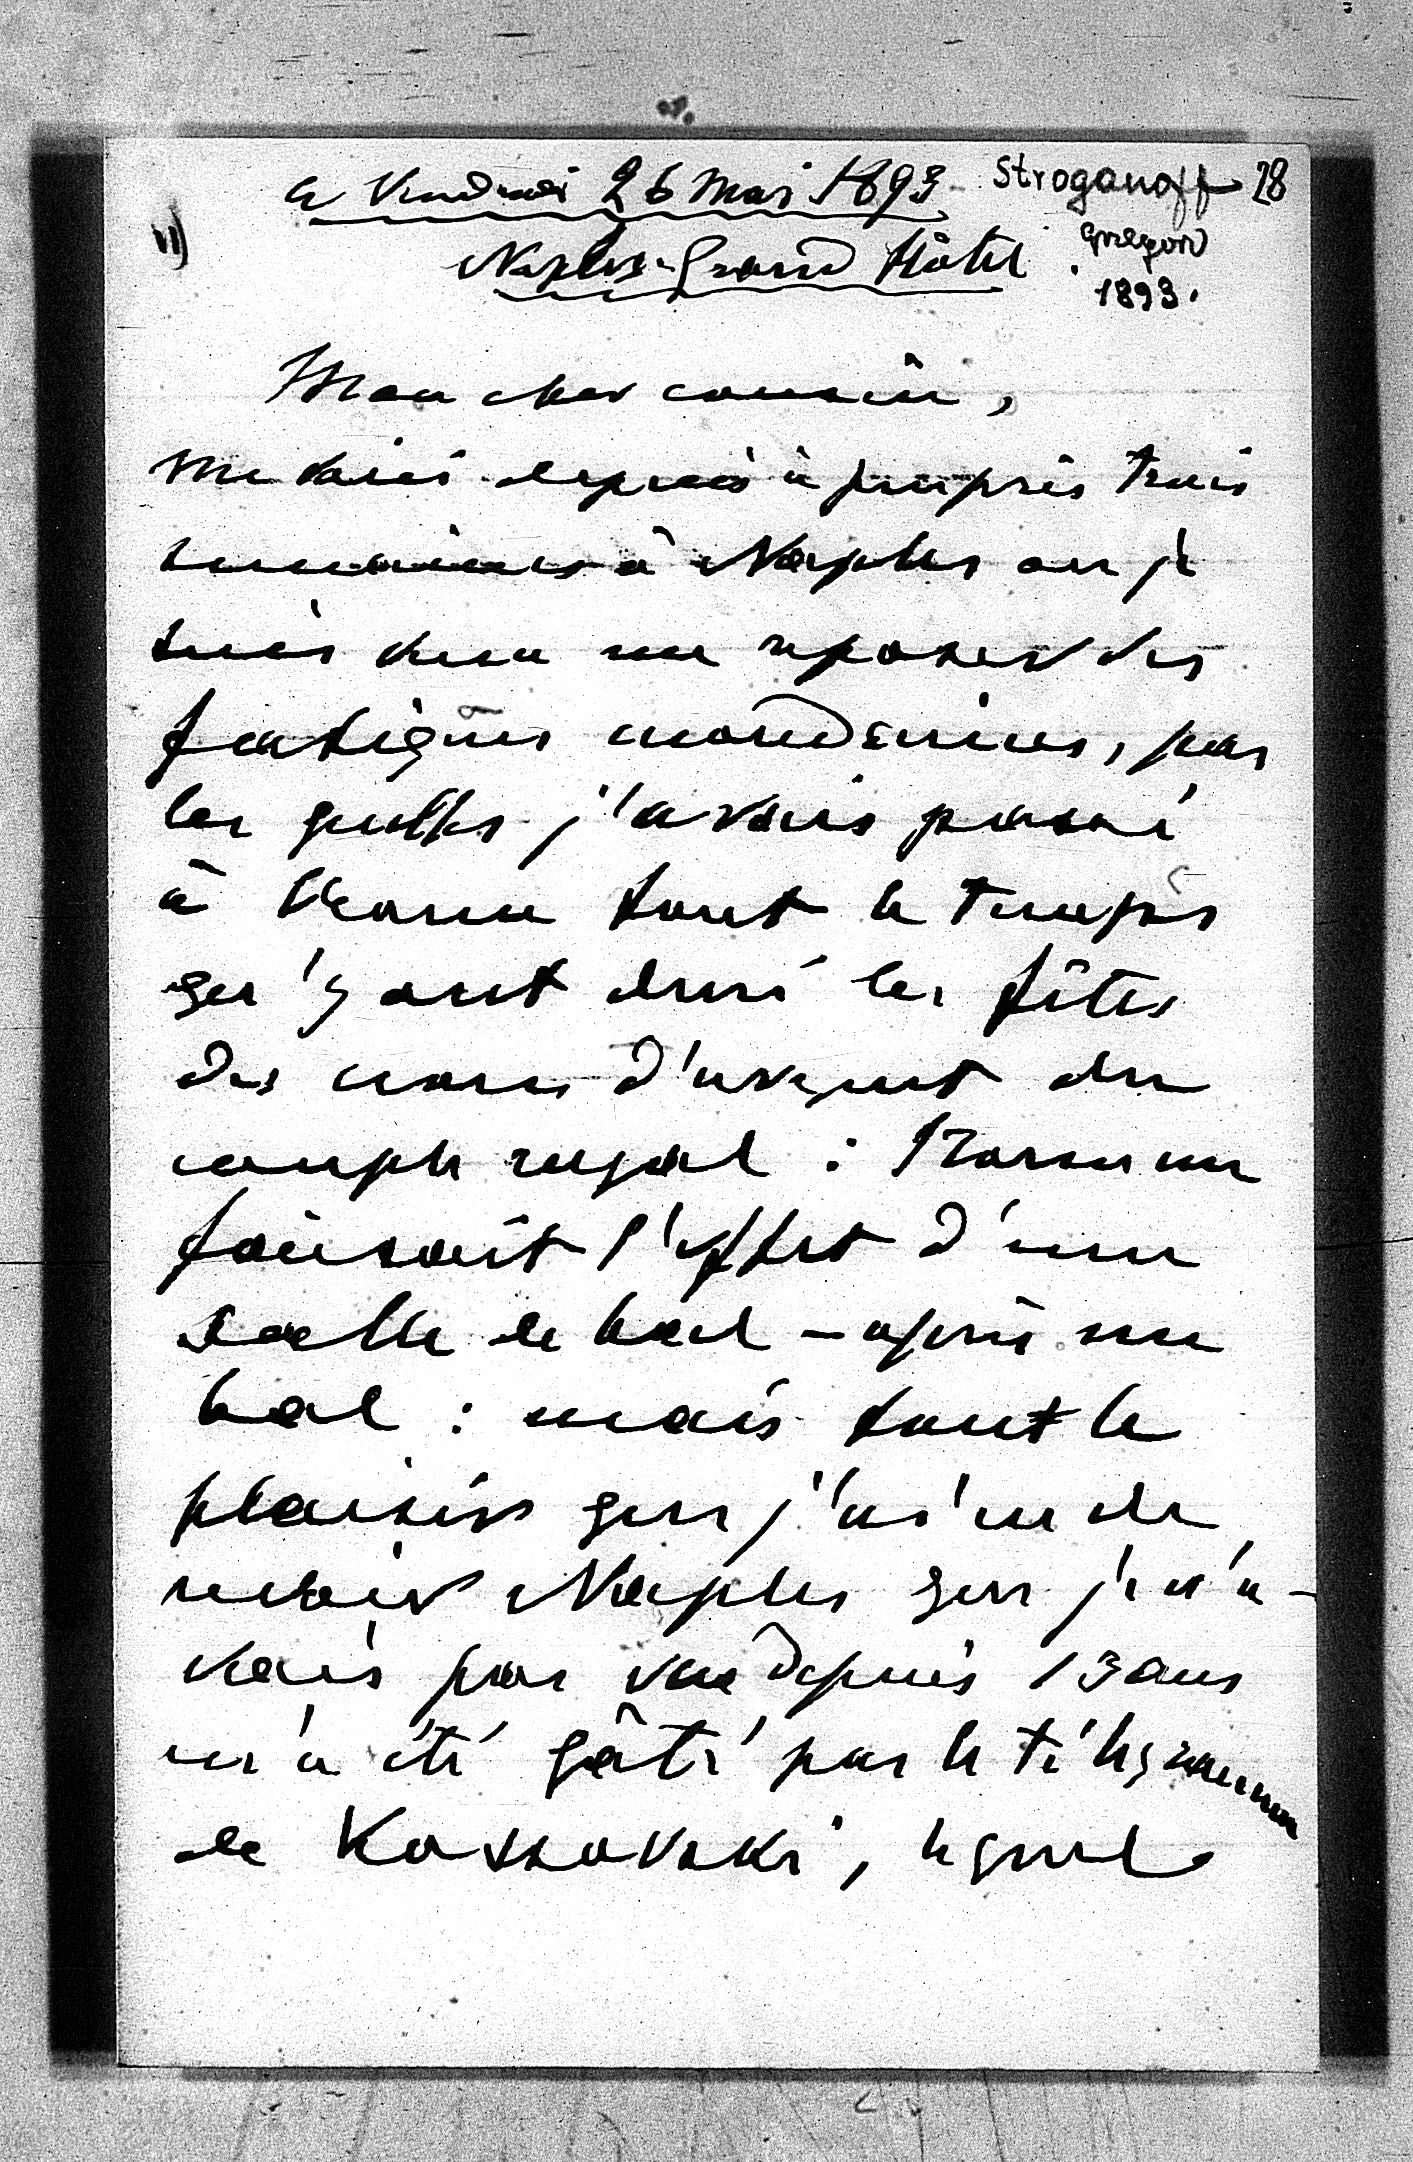 ce Vendredi 26 Mai 1893 Stroganoff 28
VI) Gregor
Naples-Grand Hôtel 1893.
Mon cher cousin,
Me voici depuis à peu près trois
semaines à Naples ou je
suis venu me reposer des
fatigues mondaines, par
les quelles j'avais passé
à Rome tout le temps
qu'y ont duré les fêtes
des noces d'argent du
couple royal : Rome me
faisait l'effet d'une
salle de bal – après un
bal : mais tout le
plaisir que j'ai eu de
revoir Naples que je n'a-
vais pas vue depuis 13 ans
m'a été gâté par le télégramme
de Kossovski, lequel